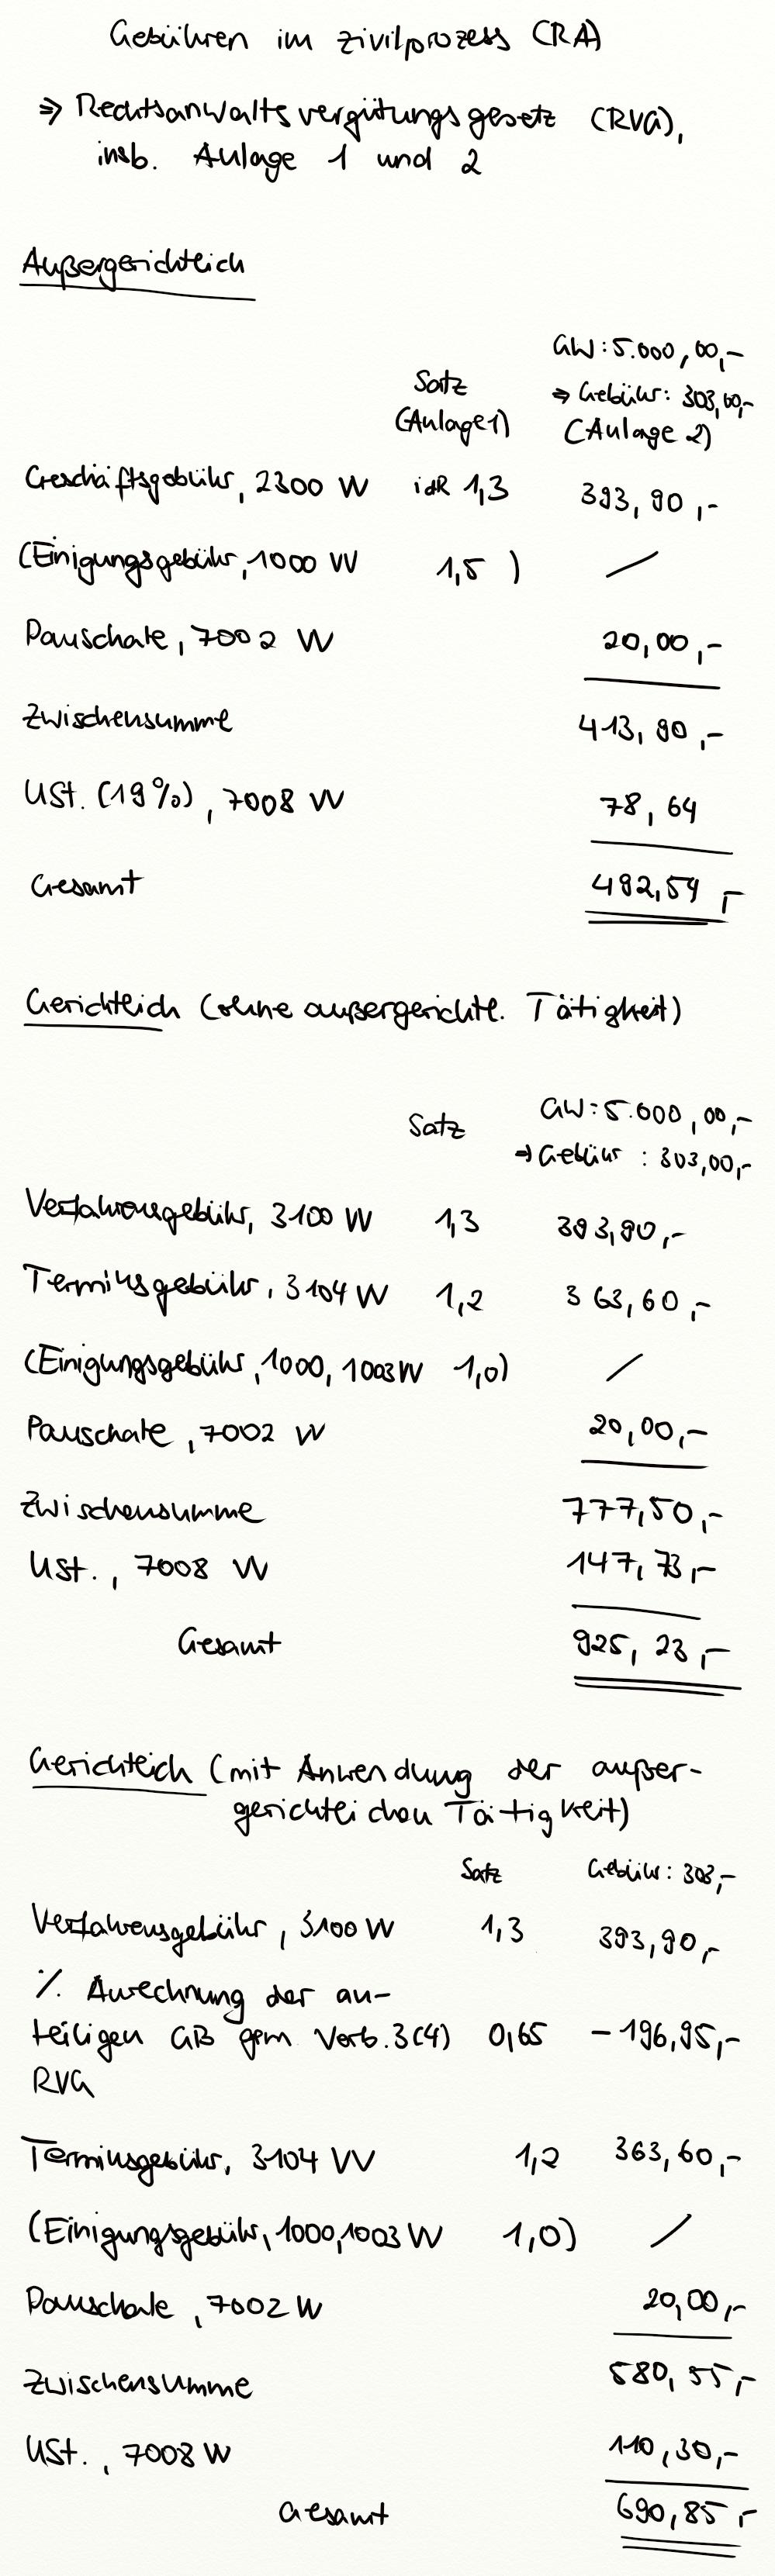 Gebühren im Zivilprozess (RA)
⇒ Rechtsanwaltsvergütungsgesetz (RVG),
insb. Anlage 1 und 2
Außergerichtlich
GW: 5.000,00,-
Satz ⇒ Gebühr: 303,00,-
(Anlage 1) (Anlage 2)
Geschäftsgebühr, 2300 VV idR 1,3 393,90,-
(Einigungsgebühr, 1000 VV 1,5 ) /
Pauschale, 7002 VV 20,00,-
Zwischensumme 413,90,-
USt. (19%), 7008 VV 78,64
Gesamt 492,54,-
Gerichtlich (ohne außergerichtl. Tätigkeit)
Satz GW: 5.000,00,-
⇒ Gebühr : 303,00,-
Verfahrensgebühr, 3100 VV 1,3 393,90,-
Terminsgebühr, 3104 VV 1,2 363,60,-
(Einigungsgebühr, 1000, 1003 VV 1,0) /
Pauschale, 7002 VV 20,00,-
Zwischensumme 777,50,-
USt., 7008 VV 147,73,-
Gesamt 925,23,-
Gerichtlich (mit Anwendung der außer-
gerichtlichen Tätigkeit)
Satz Gebühr: 303,-
Verfahrensgebühr, 3100 VV 1,3 393,90,-
./. Anrechnung der an-
teiligen GB gem Vorb. 3 (4) 0,65 - 196,95,-
RVG
Terminsgebühr, 3104 VV 1,2 363,60,-
(Einigungsgebühr, 1000, 1003 VV 1,0) /
Pauschale, 7002 VV 20,00,-
Zwischensumme 580,55,-
USt., 7008 VV 110,30,-
Gesamt 690,85,-